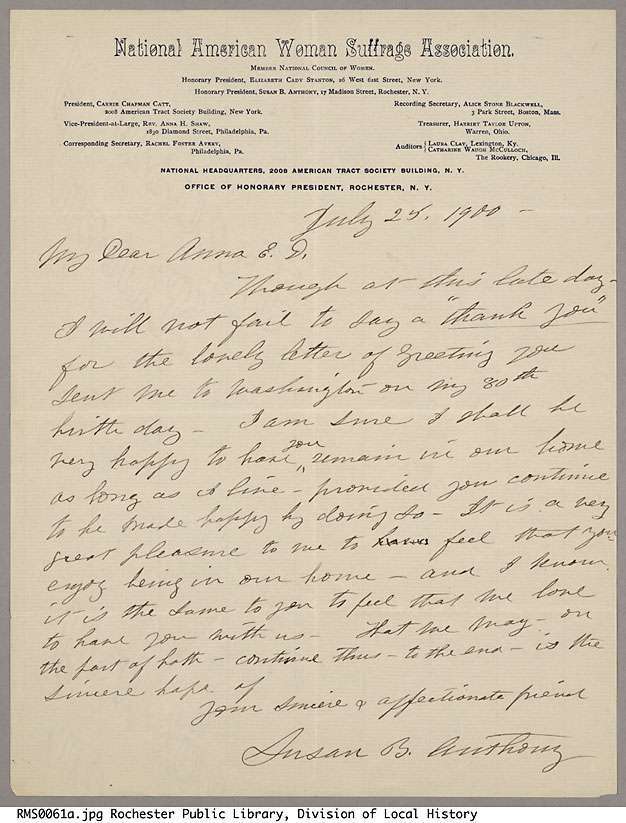 National American Woman Suffrage Association.
MEMBER NATIONAL COUNCIL OF WOMEN.
Honorary President, ELIZABETH CADY STANTON, 26 West 61st Street, New York.
Honorary President, SUSAN B. ANTHONY, 17 Madison Street, Rochester, N. Y.
President, CARRIE CHAPMAN CATT,
2008 American Tract Society Building, New York.
Vice-President-at-Large, REV. ANNA H. SHAW,
1830 Diamond Street, Philadelphia, Pa.
Corresponding Secretary, RACHEL FOSTER AVERY,
Philadelphia, Pa.
Recording Secretary, ALICE STONE BLACKWELL,
3 Park Street, Boston, Mass.
Treasurer, HARRIET TAYLOR UPTON,
Warren, Ohio.
Auditors { LAURA CLAY, Lexington, Ky.
CATHARINE WAUGH MCCULLOCH,
The Rookery, Chicago, Ill.
NATIONAL HEADQUARTERS, 2008 AMERICAN TRACT SOCIETY BUILDING, N. Y.
OFFICE OF HONORARY PRESIDENT, ROCHESTER, N. Y.
July 25, 1900 -
My Dear Anna E. D.
Though at this late day -
I will not fail to say a "thank you"
for the lovely letter of greeting you
sent me to Washington on my 80th
birth day - I am sure I shall be
very happy to have you remain in our home
as long as I live - provided you continue
to be made happy by doing so - It is a very
great pleasure to me to feel that you
enjoy being in our home - and I know
it is the same to you to feel that we love
to have you with us - That we may - on
the part of both - continue thus - to the end - is the
sincere hope of
Your sincere & affectionate friend
Susan B. Anthony
RMS0061a.jpg Rochester Public Library, Division of Local History